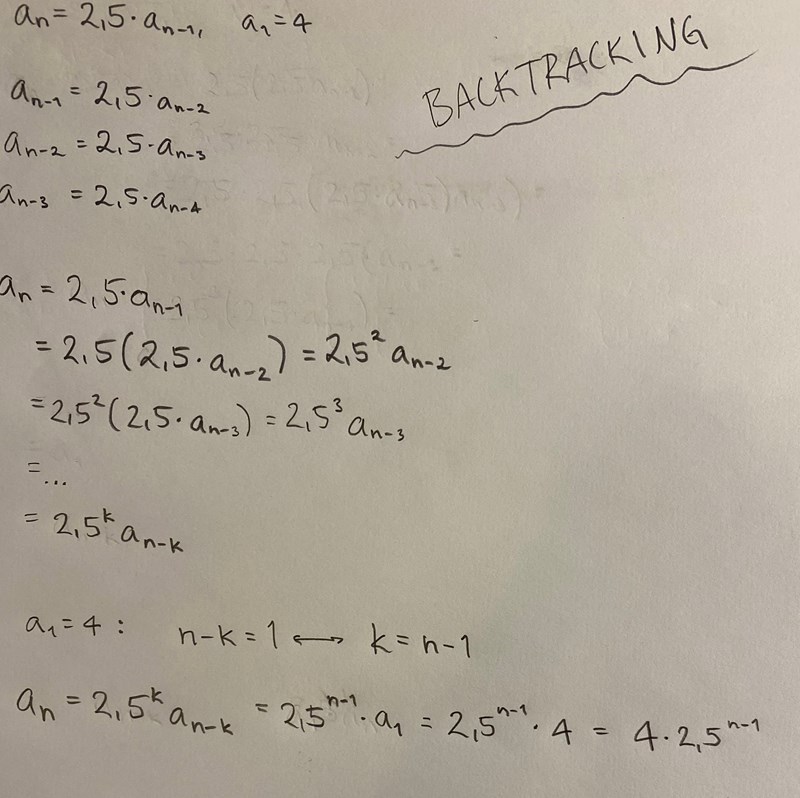 aₙ = 2,5 · aₙ₋₁, a₁ = 4
BACKTRACKING
aₙ₋₁ = 2,5 · aₙ₋₂
aₙ₋₂ = 2,5 · aₙ₋₃
aₙ₋₃ = 2,5 · aₙ₋₄
aₙ = 2,5 · aₙ₋₁
= 2,5 (2,5 · aₙ₋₂) = 2,5² aₙ₋₂
= 2,5² (2,5 · aₙ₋₃) = 2,5³ aₙ₋₃
= ...
= 2,5ᵏ aₙ₋ₖ
a₁ = 4 : n-k = 1 ⟷ k = n-1
aₙ = 2,5ᵏ aₙ₋ₖ = 2,5ⁿ⁻¹ · a₁ = 2,5ⁿ⁻¹ · 4 = 4 · 2,5ⁿ⁻¹